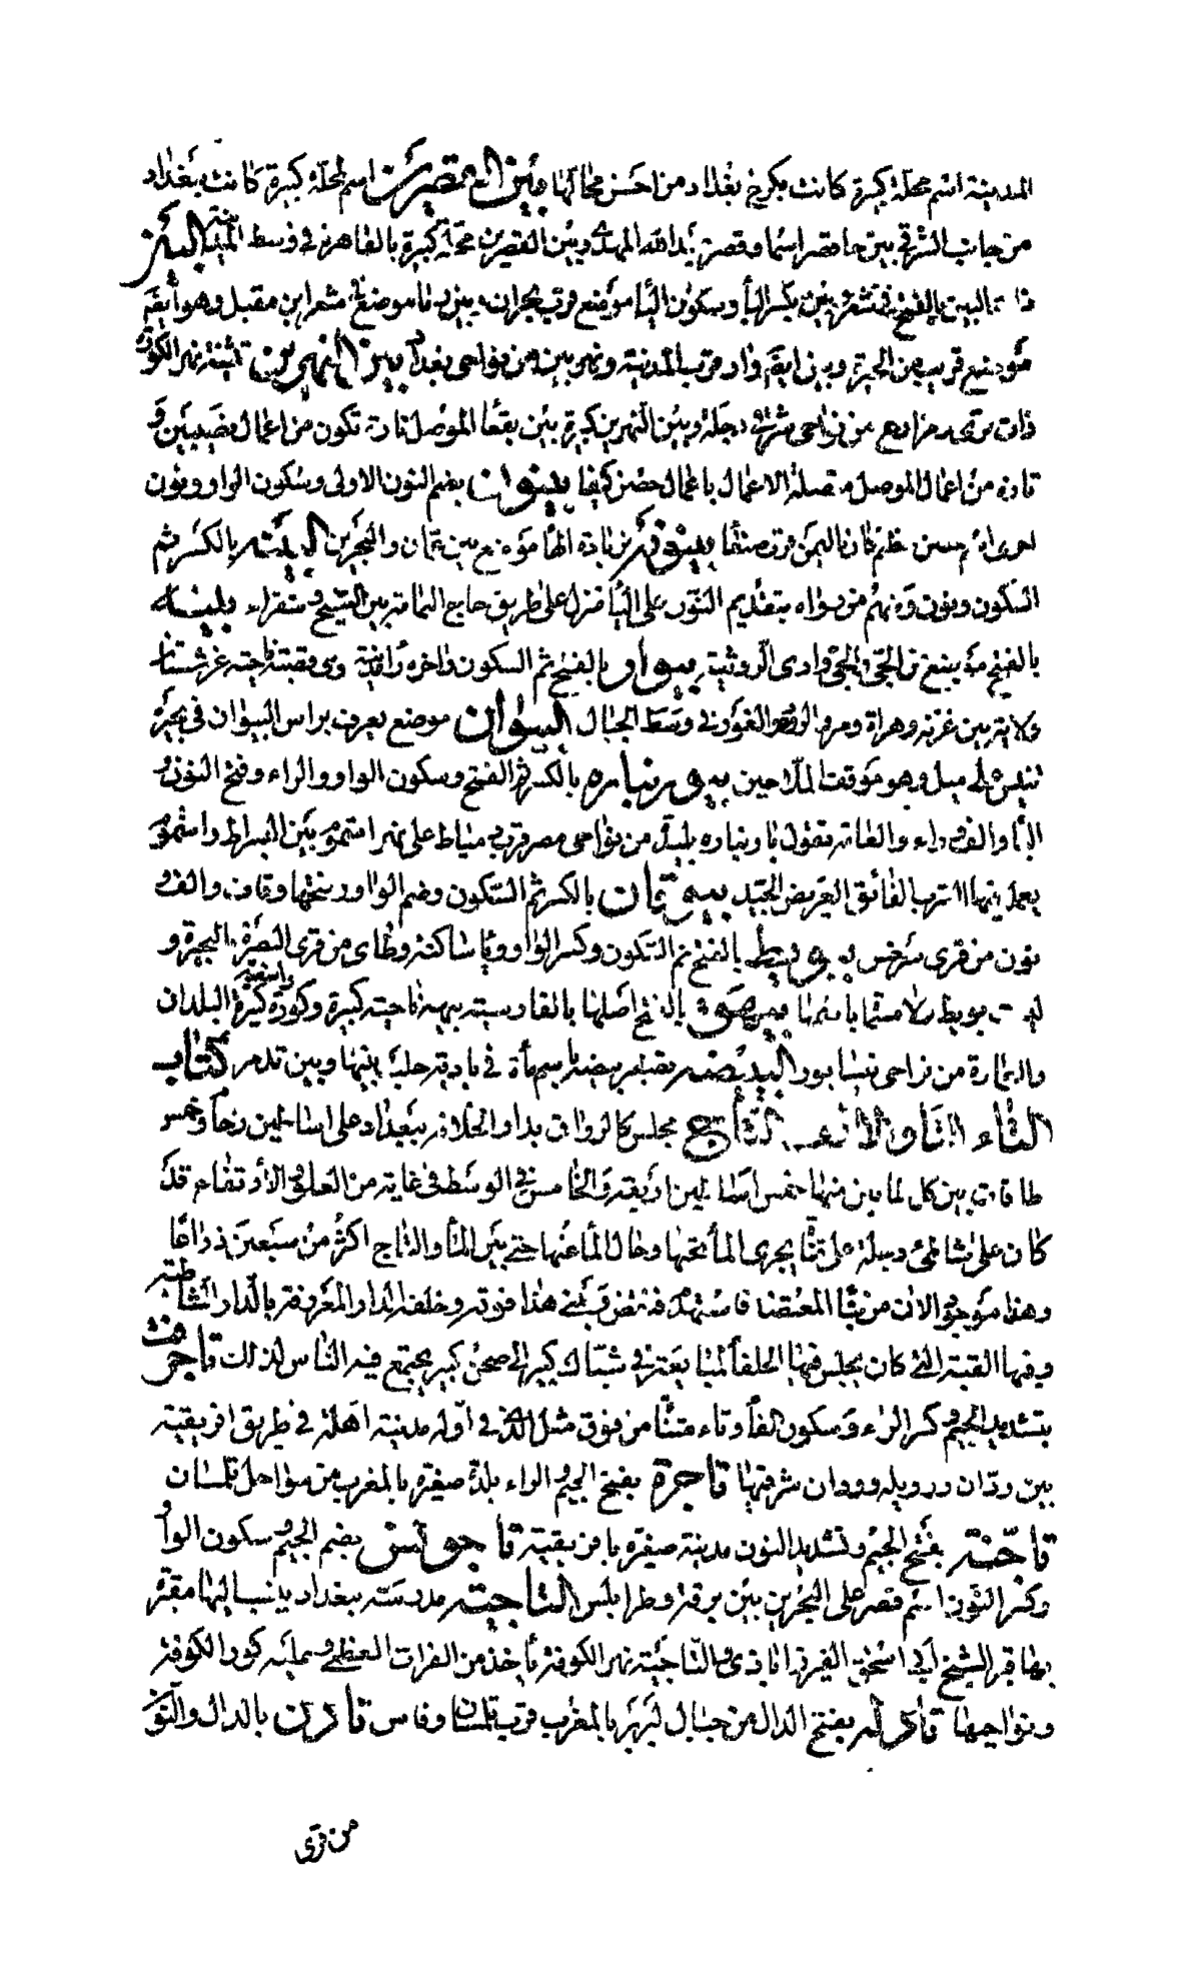 المدينة اسم محلة كبيرة كانت بكرخ بغداد من احسن محالها بين القصرين اسم لمحلة كبيرة كانت ببغداد
من جانب الشرقي بين حا قصر اسما وقصر عبدالله المهدي وبين القصرين محلة كبيرة بالقاهرة في وسط المدينة البين
ذات البين بالفتح في شعر بين بكسر الباء وسكون الياء موضع قرب نجران بين رما موضع في شعر ابن مقبل وهو ايضا
موضع قريب من الحيرة وبين ايضا واد قرب المدينة ونهر بين من نواحي بغداد بين النهرين تثنية نهر الكورة
ذات قرى ومزارع من نواحي شرقي دجلة وبين النهرين كبيرة بين بقعاء الموصل تارة تكون من اعمال نصيبين و
تارة من اعمال الموصل متصلة الاعمال باعمال حصن كيفا بينون بضم النون الاولى وسكون الواو ونون
اخرى اسم حصن عظيم كان باليمن قرب صنعا بينونة بزيادة الهاء موضع بين عمان والبحرين البينة بالكسر ثم
السكون ونون ومنهم من رواه بتقديم النون على الياء منزل على طريق حاج اليمامة بين الشيح وشقراء بينة
بالفتح موضع من الجي والجي وادي الرويثة بيوار بالفتح ثم السكون واخره راء مدينة وهي قصبة ناحية غرشستان
ولاية بين غزنة وهراة ومرو الروذ والغور في وسط الجبال البيوان موضع يعرف براس البيوان في بحيرة
تنيس على ميل وهو موقف الملاحين بيورنبارة بالكسر ثم الفتح وسكون الواو والراء وفتح النون و
الباء والف وراء والعامة تقول باورنبارة بليد من نواحي مصر قرب دمياط على نهر اشموم بين البسراط واشموم
يعمل فيها الشرب الفائق العريض الجيد بيوقان بالكسر ثم السكون وضم الواو وفتحها وقاف والف و
نون من قرى سرخس بيويط بالفتح ثم السكون وكسر الواو وياء ساكنة وطاء من قرى البصرة بالبحيرة و
ليست بويط لاسمها باسمها بيهق بالفتح اصلها بالفارسية بيهه ناحية كبيرة وكورة واسعة كثيرة البلدان
والعمارة من نواحي نيسابور البييضة تصغير بيضة اسم ماء في بادية حلب بينها وبين تدمر كتاب
التاء التاء والالف التاج مجلس كالرواق بدار الخلافة ببغداد على اساطين رخام وخمس
طاقات بين كل طاقين منها خمس اساطين اربعة والخامس في الوسط في غاية من العلو والارتفاع قد
كان على شاطئ دجلة على بناء يجري الماء تحتها وحال الماء عنها حتى بين الماء والتاج اكثر من سبعين ذراعا
وهذا موجود الان من بناء المعتضد فاستهدم فنقض وبني هذا فوقه وخلفه الدار المعروفة بالدار الشاطبية
وفيها القبة التي كان يجلس فيها الخلفاء للمبايعة في شباك كبير الى صحن كبير يجتمع فيه الناس لذلك تاجرفت
بتشديد الجيم وكسر الراء وسكون الفاء وتاء مثناة من فوق مثل الذي في اوله مدينة اهلة في طريق افريقية
بين ودان وزويلة وودان شرقيها تاجرة بفتح الجيم والراء بلدة صغيرة بالمغرب من سواحل تلمسان
تاجنة بفتح الجيم وتشديد النون مدينة صغيرة بافريقية تاجونس بضم الجيم وسكون الواو
وكسر النون اسم قصر على البحر بين برقة وطرابلس التاجية مدرسة ببغداد ينسب اليها مقبرة
بها قبر الشيخ ابي اسحق الفيروزاباذي والتاجية نهر الكوفة ياخذ من الفرات العظمى وعليه كور الكوفة
ونواحيها تادلة بفتح الدال من جبال البربر بالمغرب قرب تلمسان وفاس تادن بالدال والنون
من قرى